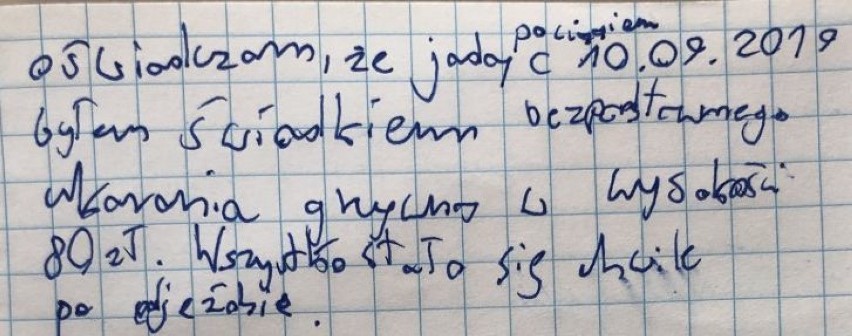 oświadczam, że jadąc pociągiem 10.09.2019
byłem świadkiem bezpodstawnego
ukarania grzywną w wysokości
80 zł. Wszystko stało się chwilę
po odjeździe.